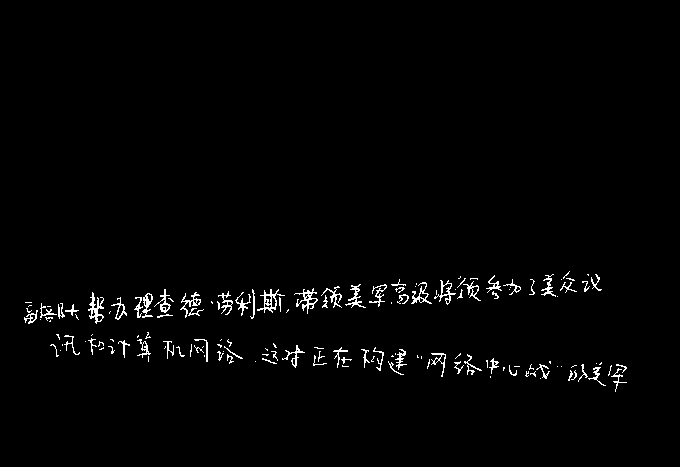 帮办理查德·劳利斯,带领美军高级将领参加了美众议
讯和计算机网络.这对正在构建“网络中心战”的美军